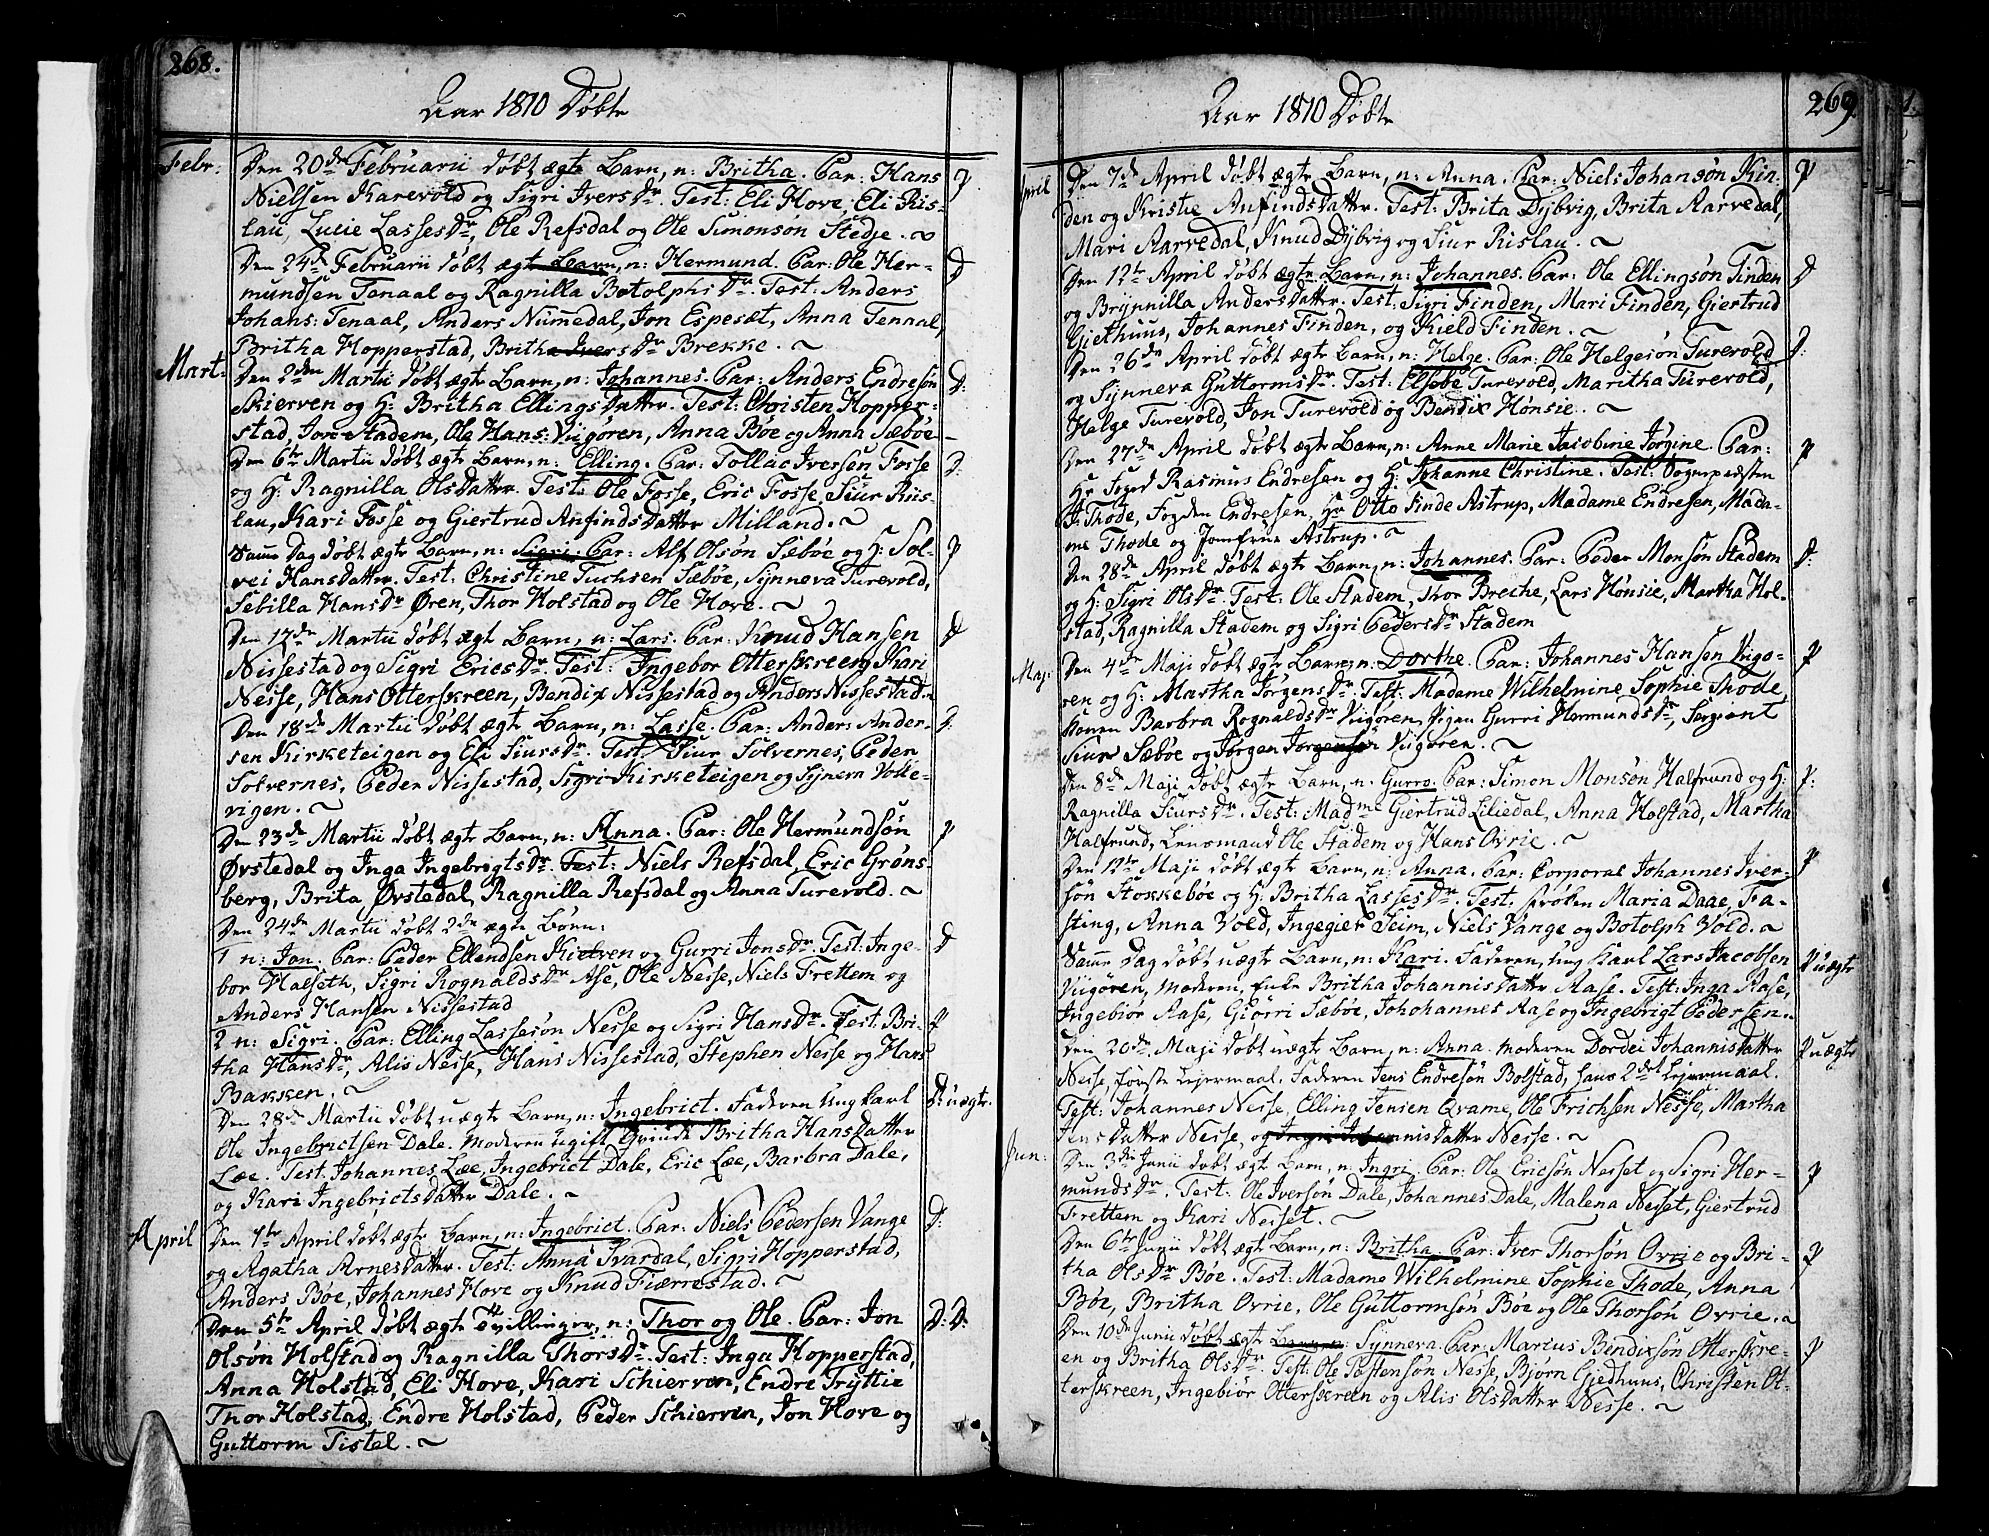 268.
Aar 1810 Døbte
Febr. Den 20de Februarii døbt ægte Barn, n: Britha. Par: Hans P
Nielsen Karevold og Sigri Ivers Dr. Test: Eli Hove, Eli Ris-
lau, Lucie Lasses Dr, Ole Refsdal og Ole Simonsøn Stedje. ~
Den 24de Februarii døbt ægt Barn, n: Hermund. Par: Ole Her- D
mundsen Tenaal og Ragnilla Botolphs Dr. Test: Anders
Johans: Tenaal, Anders Numedal, Jon Espesæt, Anna Tenaal,
Britha Hopperstad, Britha Ivers Dr Brekke. ~
Mart: Den 2den Martii døbt ægte Barn, n: Johannes. Par: Anders Endresøn D.
Skierven og H: Britha Ellings Datter. Test: Christen Hopper-
stad, Jon Stadem, Ole Hans: Viigøren, Anna Bøe og Anna Sæbøe
Den 6te Martii døbt ægte Barn, n: Elling. Par: Tollac Iversen Fosse D.
og H: Ragnilla Ols Datter. Test: Ole Fosse, Eric Fosse, Siur Riis-
lau, Kari Fosse og Giertrud Anfinds Datter Milland. ~
Samme Dag døbt ægte Barn, n: Sigri. Par: Alf Olsøn Sæbøe og H: Sol- P
vei Hansdatter. Test: Christine Tuchsen Sæbøe, Synneva Turevold,
Sebilla Hans Dr Øren, Thor Holstad og Ole Hove. ~
Den 17de Martii døbt ægt Barn, n: Lars. Par: Knud Hansen D
Nissestad og Sigri Erics Dr. Test: Ingebor Otterskreen, Kari
Nesse, Hans Otterskreen, Bendix Nissestad og Anders Nissestad. ~
Den 18de Martii døbt ægte Barn, n: Lasse. Par: Anders: Ander- D.
sen Kirketeigen og Eli Siurs Dr. Test: Siur Solvernes, Peder
Solvernes, Peder Nissestad, Sigri Kirketeigen og Synneva Volle-
vigen. ~
Den 23de Martii døbt ægte Barn, n: Anna. Par: Ole Hermundsøn P
Øvstedal og Inga Ingebrigts Dr. Test: Niels Refsdal, Eric Grøns-
berg, Brita Øvstedal, Ragnilla Refsdal og Anna Turevold. ~
Den 24de Martii døbt 2de ægte Børn:
1 n: Jon. Par: Peder Ellendsen Kielven og Gurri Jons Dr. Test: Inge- D
bor Halseth, Sigri Rognalds Dr Ase, Ole Nesse, Niels Frettem og
Anders Hansen Nissestad
2 n: Sigri. Par: Elling Lassesøn Nesse og Sigri Hans Dr. Test: Bri- P
tha Hans Dr, Alis Nesse, Hans Nissestad, Stephen Nesse og Hans
Bakken. ~
Den 28de Martii døbt uægte Barn, n: Ingebrict. Faderen Ung Karl D: uægte.
Ole Ingebrictsen Dale. Moderen ugift Qvinde Britha Hans Datter
Læe. Test: Johannes Læe, Ingebrict Dale, Eric Læe, Barbra Dale,
og Kari Ingebricts Datter Dale. ~
April Den 1te April døbt ægte Barn, n: Ingebrict. Par: Niels Pedersen Vange D:
og Agatha Arnes Datter. Test: Anna Svardal, Sigri Hopperstad,
Anders Bøe, Johannes Hove og Knud Fiærrestad. ~
Den 5te April døbt ægte Tvillinger, n: Thor og Ole. Par: Jon D: D:
Olsøn Holstad og Ragnilla Thors Dr. Test: Inga Hopperstad,
Anna Holstad, Eli Hove, Kari Schierven, Endre Tryttie
Thor Holstad, Endre Holstad, Peder Schierven, Jon Hove og
Guttorm Tistel. ~
269
Aar 1810 Døbte
April Den 7de April døbt ægte Barn, n: Anna. Par: Niels Johansøn Kin- P
den og Kristie Anfinds Datter. Test: Brita Dybvig, Brita Aarvedal,
Mari Aarvedal, Knud Dybvig og Siur Rislau. ~
Den 12te April døbt ægte Barn, n: Johannes. Par: Ole Ellingsøn Finden D
og Brynnilla Anders Datter. Test: Sigri Finden, Mari Finden, Giertrud
Giethuus, Johannes Finden, og Kield Finden. ~
Den 26de April døbt ægte Barn, n: Helge. Par: Ole Helgesøn Turevold D:
og Synneva Guttorms Dr. Test: Elsebe Turevold, Maritha Turevold,
Helge Turevold, Jon Turevold og Bendix Hønsie. ~
Den 27de April døbt ægte Barn, n: Anne Marie Jacobine Jørgine. Par: P
Hr Foged Rasmus Endresen og H: Johanne Christine. Test: Sogneprästen
Hr Thode, Fogden Endresen, Hr Otto Finde Astrup, Madame Endresen, Mada-
me Thode og Jomfrue Astrup. ~
Den 28de April døbt ægte Barn, n: Johannes. Par: Peder Monsøn Stadem D:
og H: Sigri Ols Dr. Test: Ole Stadem, Thor Breche, Lars Hønsie, Martha Hol-
stad, Ragnilla Stadem og Sigri Peders Dr Stadem
Maj: Den 4de Maji døbt ægte Barn, n: Dorthe. Par: Johannes Hansen Viigø- P
ren og H: Martha Jørgens Dr. Test: Madame Wilhelmine Sophie Thode,
Konen Barbra Rognalds Dr Viigøren, Pigen Gurri Hermunds Dr, Sergiant
Siur Sæbøe og Jørgen Jørgensøn Viigøren. ~
Den 8de Maji døbt ægte Barn, n: Gurro. Par: Simon Monsøn Halfrund og H: P:
Ragnilla Siurs Dr. Test: Madme Giertrud Liliedal, Anna Holstad, Martha
Halfrund, Lensmand Ole Stadem og Hans Ovrie. ~
Den 12te Maji døbt ægte Barn, n: Anna. Par: Corporal Johannes Iver- P
søn Stokkebøe og H: Britha Lasses Dr. Test. Frøken Maria Daae, Fa-
sting, Anna Vold, Ingegier Seim, Niels Vange og Botolph Vold. ~
Samme Dag døbt uægte Barn, n: Kari. Faderen, Ung Karl Lars Jacobsen P uægte
Viigøren, Moderen, Enke Britha Johannis Datter Aase. Test: Inga Aase,
Ingebiør Aase, Giørri Sæbøe, Johohannes Aase og Ingebrigt Pedersen. ~
Den 20de Maji døbt uægte Barn, n: Anna. Moderen Dordei Johannis Datter P uægte
Nesse, første Lejermaal. Faderen Jens Endresøn Bolstad, hans 2det Lejermaal.
Test: Johannes Nesse, Elling Jensen Qvame, Ole Erichsen Nesse, Martha
Jens Datter Nesse, og Johannis Datter Nesse. ~
Jun: Den 3die Junii døbt ægte Barn, n: Ingri. Par: Ole Ericsøn Nesset og Sigri Her- P
munds Dr. Test: Ole Iversøn Dale, Johannes Dale, Malena Nesset, Giertrud
Frettem og Kari Nesset. ~
Den 6te Junii døbt ægte Barn, n: Britha. Par: Iver Thorsøn Ovrie og Bri- P
tha Ols Dr Bøe. Test: Madame Wilhelmine Sophie Thode, Anna
Bøe, Britha Ovrie, Ole Guttormsøn Bøe og Ole Thorsøn Ovrie. ~
Den 10de Junii døbt ægte Barn, n: Synneva. Par: Marius Bendixsøn Otterskre- P
en og Britha Ols Dr. Test: Ole Tostensøn Nesse, Bjørn Gjedhuus, Christen Ot-
terskreen, Ingebiør Otterskreen og Alis Ols Datter Nesse. ~